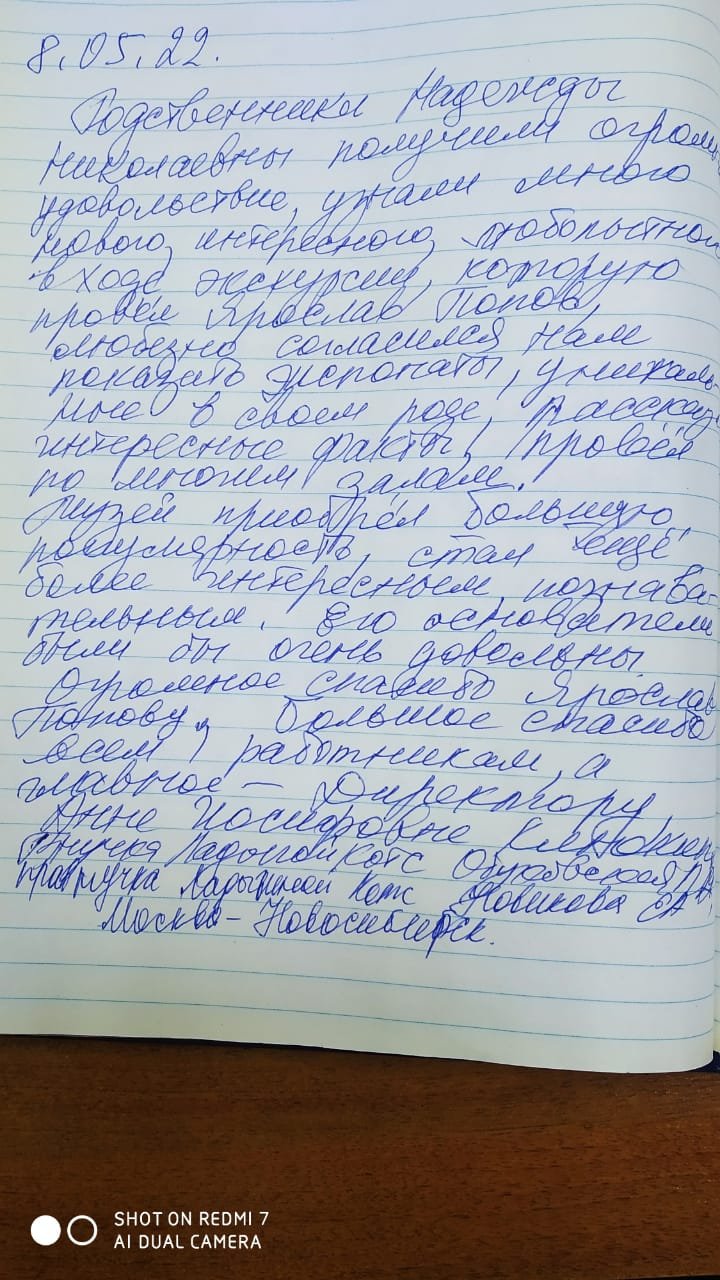 8.05.22.
Родственники Надежды
Николаевны получили огромн
удовольствие, узнали много
нового, интересного, любопытного
в ходе экскурсии, которую
провёл Ярослав Попов,
любезно согласился нам
показать экспонаты, уникаль-
ные в своем роде, рассказ
интересные факты, провёл
по многим залам.
Музей приобрёл большую
популярность, стал ещё
более интересным, познава-
тельным. Его основатели
были бы очень довольны.
Огромное спасибо Ярославу
Попову, большое спасибо
всем работникам, а
главное – Директору
Анне Иосифовне
Внучка Котс Обуховская
правнучка Ладыгиной Котс Новикова ЕА
Москва – Новосибирск.
SHOT ON REDMI 7
AI DUAL CAMERA